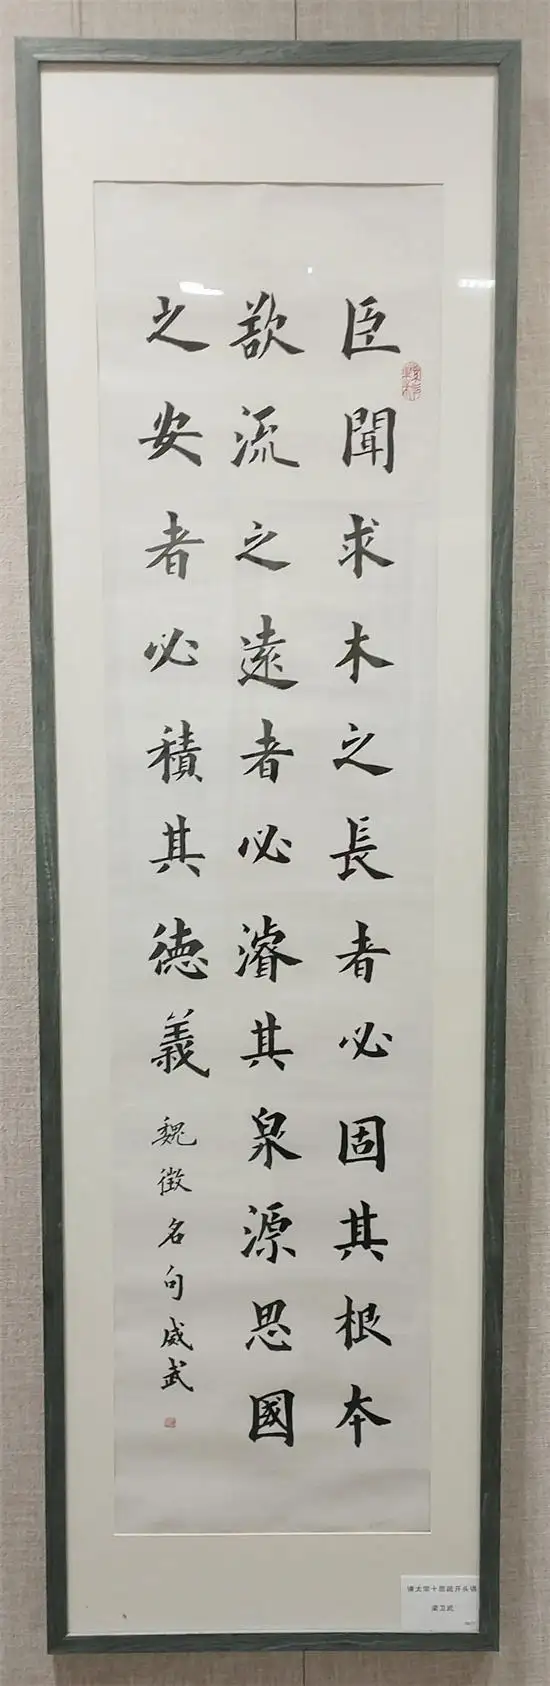 臣聞求木之長者必固其根本
欲流之遠者必濬其泉源思國
之安者必積其德義
魏徵名句威武
谏太宗十思疏开头语
梁卫武